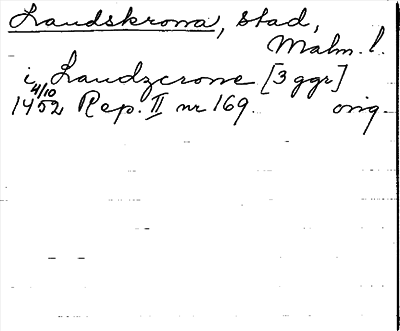 Landskrona, stad,
Malm. l.
i Landzcrone [3 ggr]
1452 4/10 Rep. II nr 169. orig.